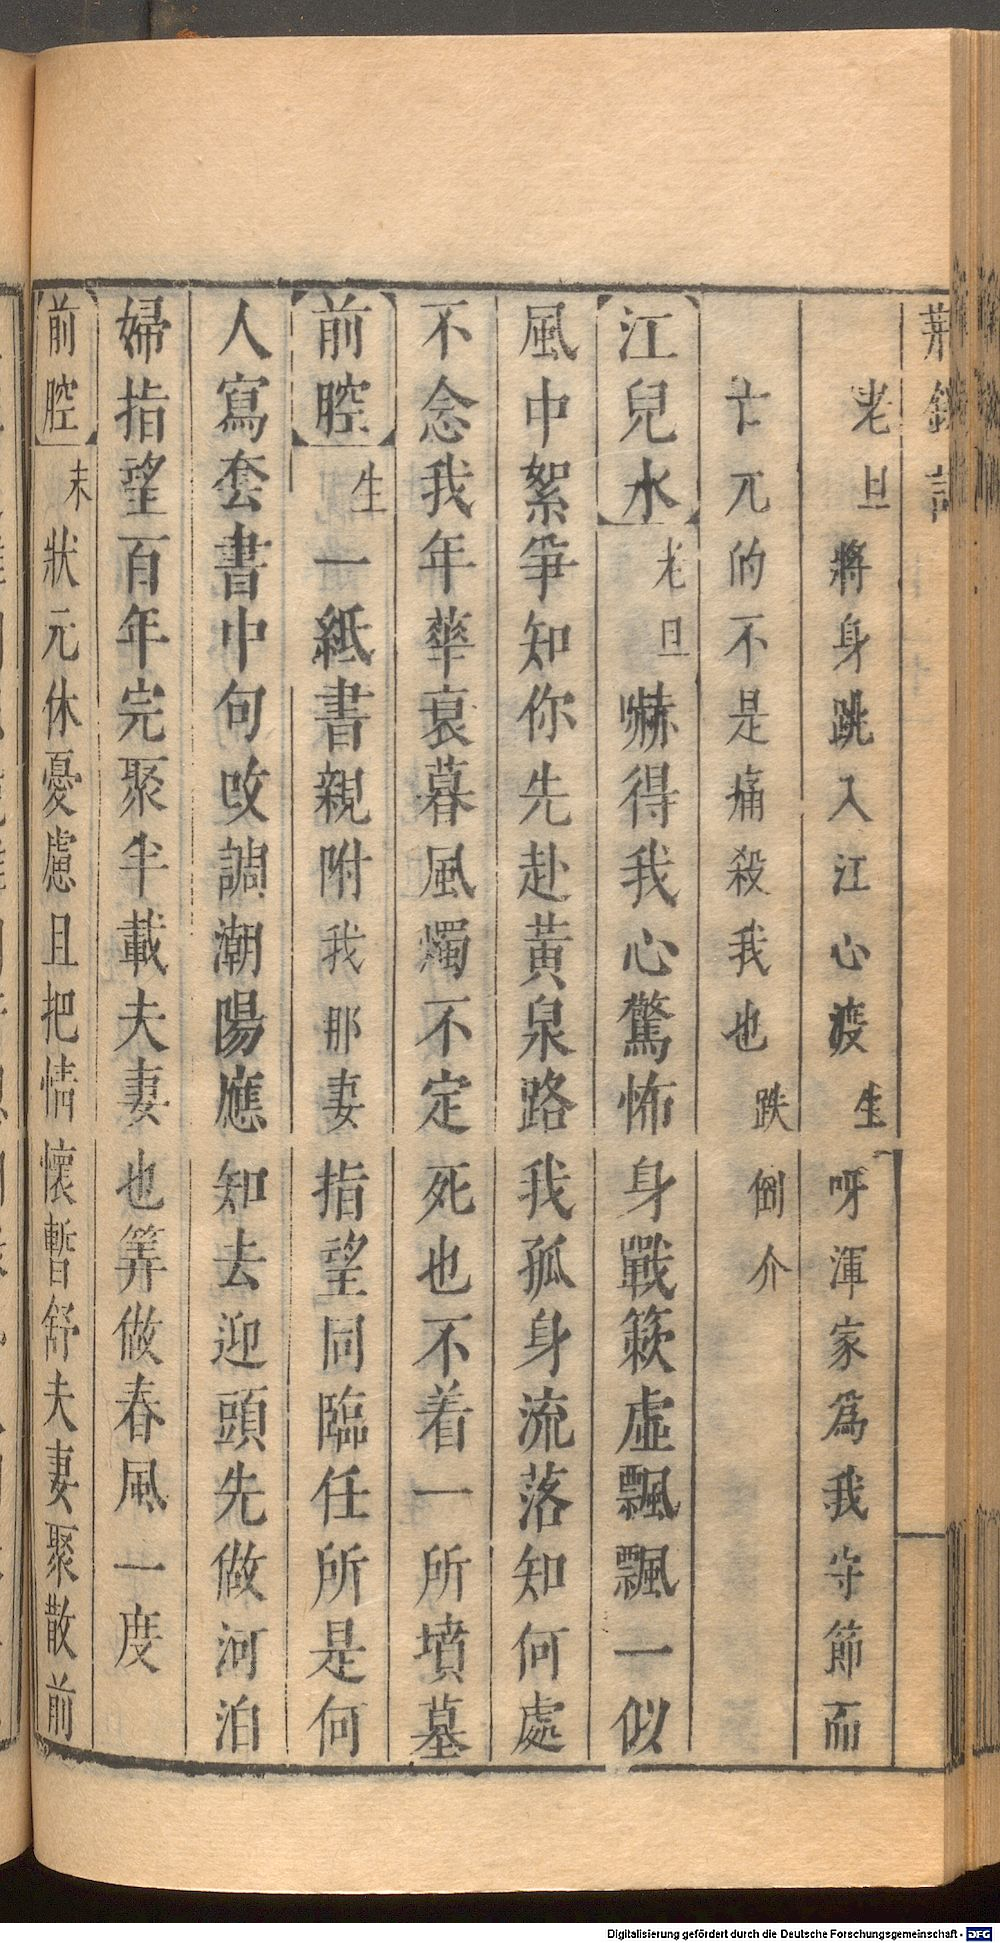 荆釵記
老旦將身跳入江心渡生呀渾家爲我守節而
亡兀的不是痛殺我也跌倒介
江兒水老旦嚇得我心驚怖身戰簌虛飄飄一似
風中絮爭知你先赴黃泉路我孤身流落知何處
不念我年華衰暮風燭不定死也不着一所墳墓
前腔生一紙書親附我那妻指望同臨任所是何
人寫套書中句改調潮陽應知去迎頭先做河泊
婦指望百年完聚半載夫妻也筭做春風一度
前腔末狀元休憂慮且把情懷暫舒夫妻聚散前
Digitalisierung gefördert durch die Deutsche Forschungsgemeinschaft - DFG